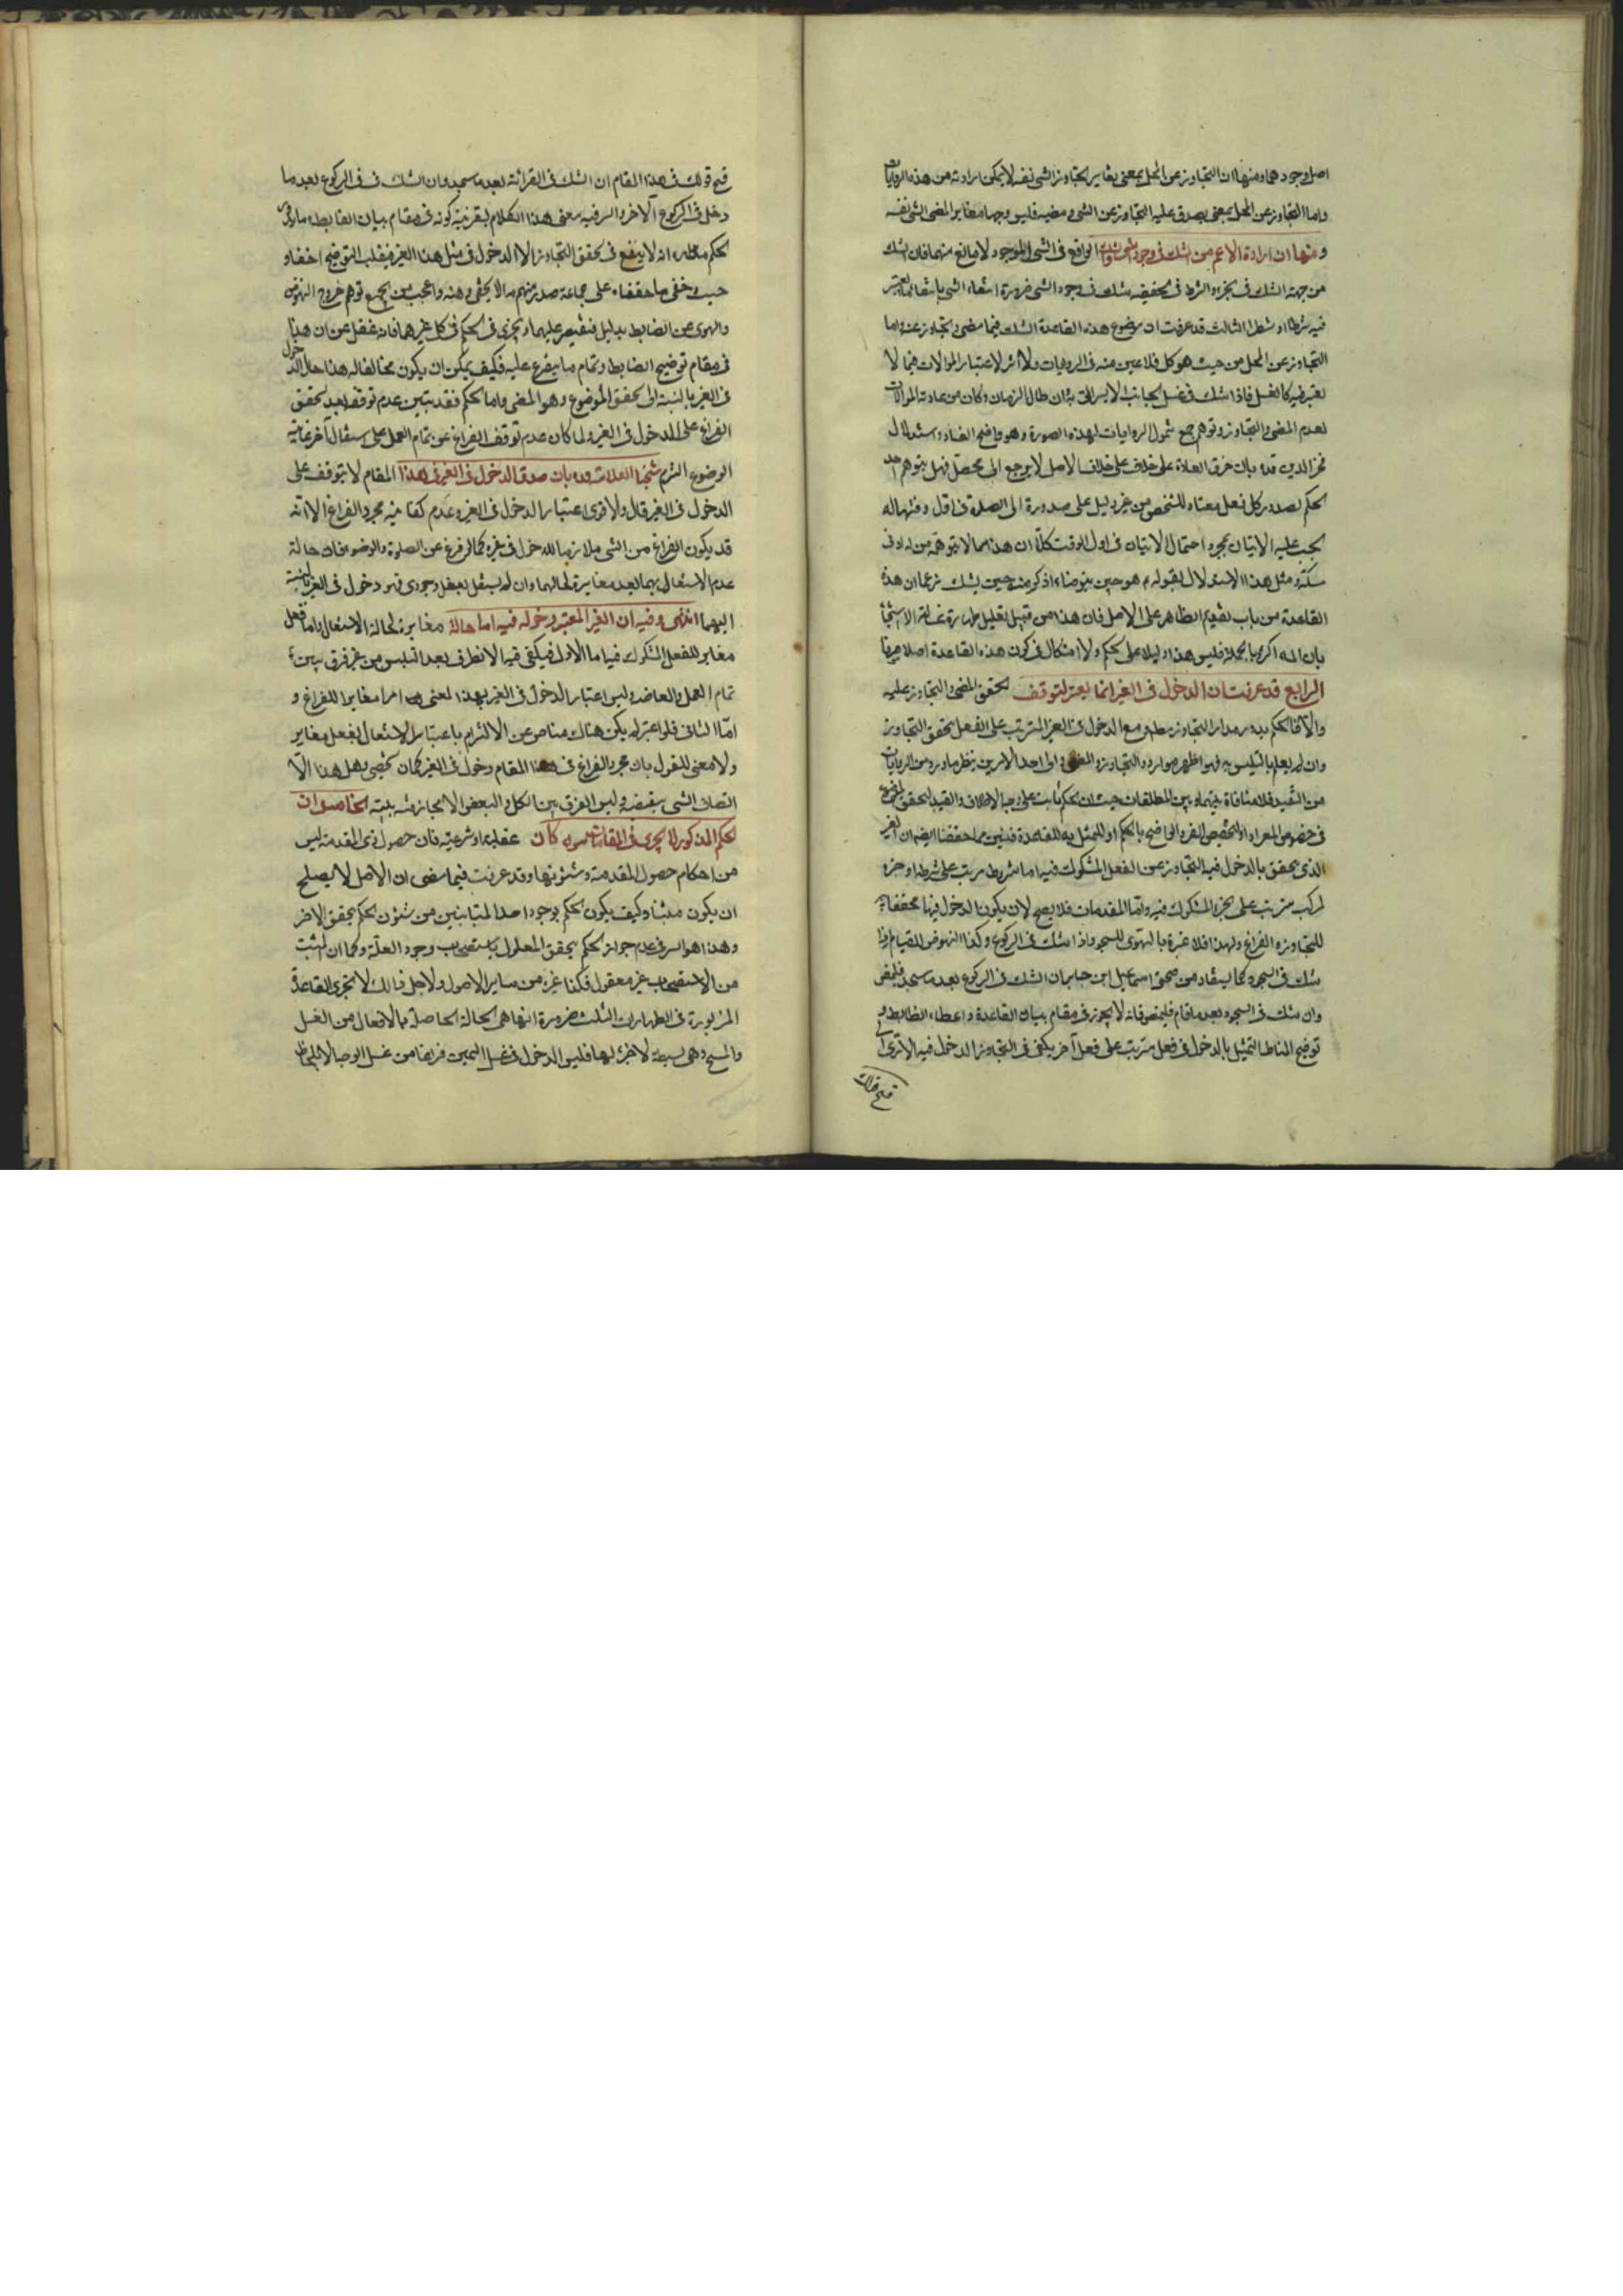 اصل وجودهما ومنها ان التجاوز عن المحل بمعنى يغاير التجاوز الشى نفسه لا يمكن ارادته من هذه الروايات
واما التجاوز عن المحل بمعنى يصدق عليه التجاوز عن الشى ومضيه فليس وجها مغايرا لمضى الشى نفسه
ومنها ان ارادة الاعم من الشك فى وجود الشى والشك الواقع فى الشى الموجود لا مانع منها فان الشك
من جهة الشك فى الجزء والشرط فى تحقيقه شك فى وجود الشى ضرورة انتفاء الشى بانتفاء ما يعتبر
فيه شرطا او شطرا الثالث قد عرفت ان موضوع هذه القاعدة الشك فيما مضى وتجاوز عنه واما
التجاوز عن المحل من حيث هو كل فلا عين منه فى الروايات ولا اثر لاعتبار الموالات فيما لا
يعتبر فيه كالغسل فاذا شك فى غسل الجانب الايسر الى ان طال الزمان وكان من عادته الموالات
لعدم المضى والتجاوز وتوهم جمع شمول الروايات لهذه الصورة وهو واضح الفساد واستدلال
فخر الدين قده بان خرق العادة على خلاف الاصل لا يرجع الى محصل فهل يتوهم احد
الحكم لصدور كل فعل معتاد للشخص من غير دليل على صدوره الى الصلوة فى اول وقتها له
يجب عليه الاتيان بمجرد احتمال الاتيان فى اول الوقت كلا ان هذا مما لا يتوهمه من له ادنى
مسكة ومثل هذا الاستدلال لقوله ع هو حين يتوضأ اذكر منه حين يشك زعما ان هذه
القاعدة من باب تقديم الظاهر على الاصل فان هذا من قبيل تعليل طهارة غسالة الاستنجا
بان الماء اكثر وبالجملة فليس هذا دليلا على الحكم ولا اشكال فى كون هذه القاعدة اصلا
الرابع قد عرفت ان الدخول فى الغير انما يعتبر لتوقف تحقق المضى والتجاوز عليه
والا فالحكم يدور مدار التجاوز مطلقا ومع الدخول فى الغير المترتب على الفعل يتحقق التجاوز
وان لم يعلم بالتلبس به فهو اظهر موارد التجاوز والمضى والى احد الامرين ينظر ما ورد من الروايات
من التقييد فلا منافاة بينها وبين المطلقات حيث ان الحكم ثابت على وجه الاطلاق والقيد لتحقق الموضوع
فى خصوص المورد او لتخصيص الفرد الواضح بالحكم او للتمثيل به للقاعدة فتبين مما حققنا ايضا ان الغير
الذى يتحقق بالدخول فيه التجاوز عن الفعل المشكوك فيه اما مشروط مرتب على شرطه او جزء
لمركب مترتب على الجزء المشكوك فيه واما المقدمات فلا يصح لان يكون الدخول فيها محققا
للتجاوز والفراغ ولهذا فلا عبرة بالهوى للسجود اذا شك فى الركوع وكذا النهوض للقيام اذا
شك فى السجود كما يستفاد من صحيحة اسمعيل ابن جابر ان الشك فى الركوع بعد ما سجد فليمض
وان شك فى السجود بعد ما قام فليمض فانه لا يجوز فى مقام بيان القاعدة واعطاء الضابط و
توضيح المناط التمثيل بالدخول فى فعل مترتب على فعل آخر يكفى فى التجاوز الدخول فيه الا ترى
قبح قولك
قبح قولك فى هذا المقام ان الشك فى القرائة بعد ما سجد وان شك فى الركوع بعد ما
دخل فى الركوع الآخر والسر فيه معنى هذا الكلام بقرينة كونه فى مقام بيان الضابط
الحكم انه لا ينفع فى تحقق التجاوز الا الدخول فى مثل هذا الغير فيقلب التوضيح اخفاء و
حيث خفى ما حققناه على جماعة صدر منهم ما لا يخفى وهنه واعجب من الجميع توهم خروج النهوض
والهوى عن الضابط بدليل فنقتصر عليهما ونجرى فى الحكم فى كل غيرهما فانه غفل عن ان هذا
فى مقام توضيح الضابط وتمام ما يتفرع عليه فكيف يمكن ان يكون مخالفا له هذا حال الدخول
فى الغير بالنسبة الى تحقق الموضوع وهو المضى واما الحكم فقد تبين عدم توقفه بعد تحقق
الفراغ على الدخول فى الغير ولما كان عدم توقف الفراغ عن تمام العمل على اشتغال آخر
الوضوح التزم شيخنا العلامة قده بان صدق الدخول فى الغير فى هذا المقام لا يتوقف على
الدخول فى الغير قال والاقوى اعتبار الدخول فى الغير وعدم كفاية مجرد الفراغ الا انه
قد يكون الفراغ من الشى ملازما للدخول فى غيره كما لو فرغ عن الصلوة والوضوء فان حالة
عدم الاشتغال بهما يعد مغايرة لحالهما وان لم يشتغل بفعل وجودى فهو دخول فى الغير بالنسبة
اليهما انتهى وفيه ان الغير المعتبر دخوله فيه اما حالة مغايرة لحالة الاشتغال واما فعل
مغاير للفعل المشكوك فيه اما الاول فيكفى فيه الانصراف بعد التلبس من غير فرق بين
تمام العمل والعاضد وليس اعتبار الدخول فى الغير بهذا المعنى امرا مغايرا للفراغ و
اما الثانى فلو اعتبر لم يكن هناك مناص عن الالتزام باعتبار الاشتغال بفعل مغاير
ولا معنى للقول بان مجرد الفراغ فى هذا المقام دخول فى الغير وهل هذا الا
اتصاف الشى بنقيضه وليس الفرق بين الكل والبعض الا مجازفة بينة الخامس ان
الحكم المذكور لا يجرى فى المقدمات سواء كان عقلية او شرعية فان حصول ذى المقدمة ليس
من احكام حصول المقدمة وشئونها وقد عرفت فيما مضى ان الاصل لا يصلح
ان يكون مثبتا وكيف يكون الحكم بوجود احد المتباينين من شئون الحكم بتحقق الاخر
وهذا هو السر فى عدم جواز الحكم بتحقق المعلول باستصحاب وجود العلة وكما ان المثبت
من الاستصحاب غير معقول فكذا غيره من ساير الاصول ولاجل ذالك لا تجرى القاعدة
المزبورة فى الطهارات الثلث ضرورة انها هى الحالة الحاصلة بالافعال من الغسل
والمسح وهى بسيطة لا جزء لها فليس الدخول فى غسل اليمين فراغا من غسل الوجه